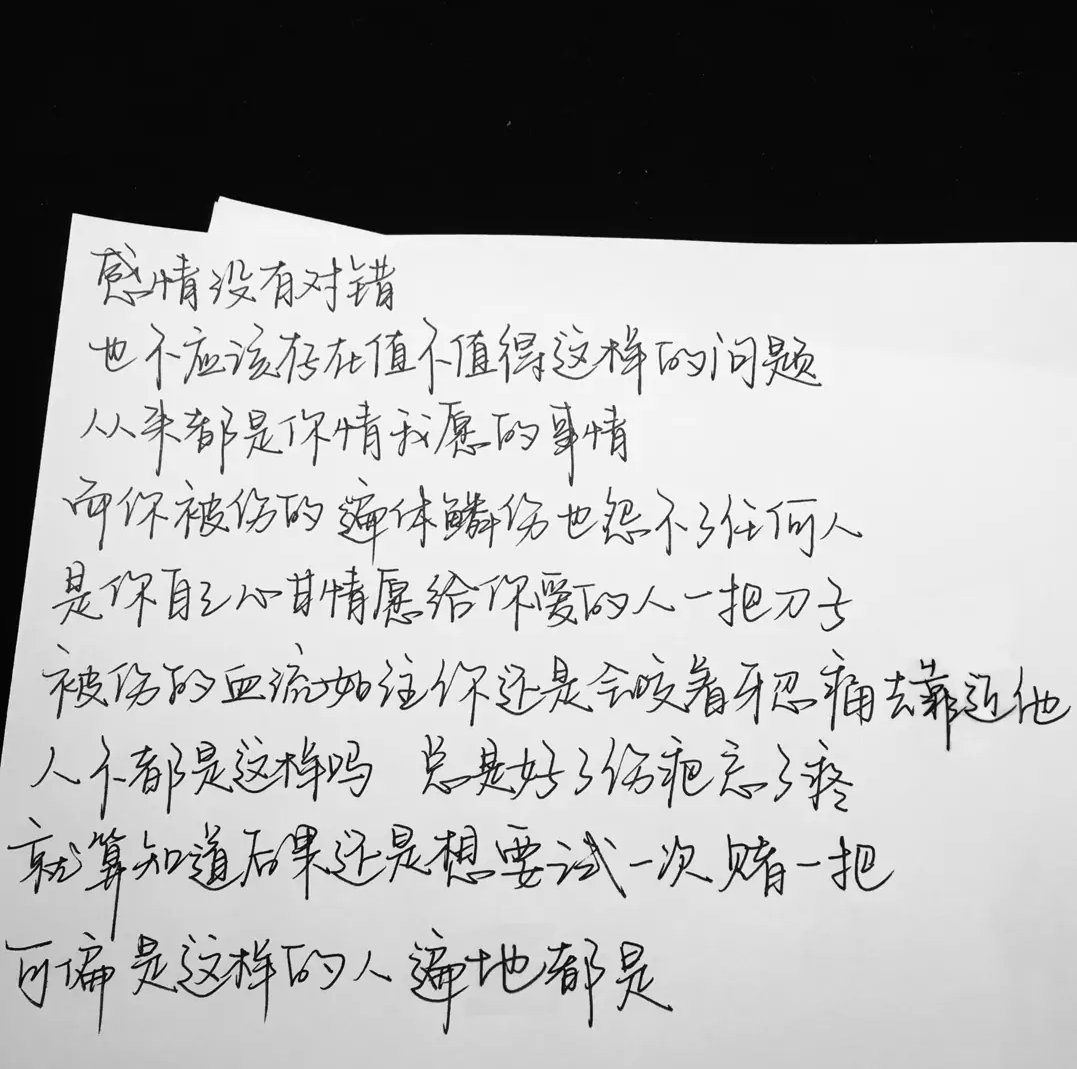 感情没有对错
也不应该存在值不值得这样的问题
从来都是你情我愿的事情
而你被伤的遍体鳞伤也怨不了任何人
是你自己心甘情愿给你爱的人一把刀子
被伤的血流如注你还是会咬着牙忍痛去靠近他
人不都是这样吗 总是好了伤疤忘了疼
就算知道后果还是想要试一次赌一把
可偏是这样的人遍地都是